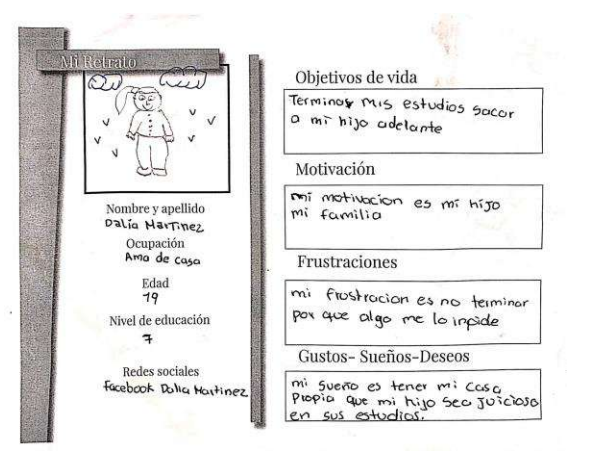 Mi Retrato
Nombre y apellido
Dalia Martinez
Ocupación
Ama de casa
Edad
19
Nivel de educación
7
Redes sociales
facebook Dalia Martinez
Objetivos de vida
Terminar mis estudios sacar
a mi hijo adelante
Motivación
mi motivacion es mi hijo
mi familia
Frustraciones
mi frostracion es no terminar
por que algo me lo inpide
Gustos- Sueños-Deseos
mi sueño es tener mi casa
propia que mi hijo sea juicioso
en sus estudios.